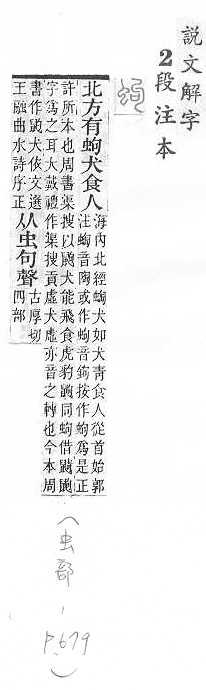 説文解字
2段注本
蚼
北方有蚼犬食人
海內北經蜪犬如犬青食人從首始郭
注蜪音陶或作蚼音鉤按作蚼爲是正
許所本也周書渠搜以鼩犬能飛食虎豹鼩同蚼借鼩鼩
字爲之耳大戴禮作渠搜貢虛犬虛亦音之轉也今本周
書作䶂犬依文選
王融曲水詩序正
从虫句聲
古厚切
四部
(虫部,
P.679)